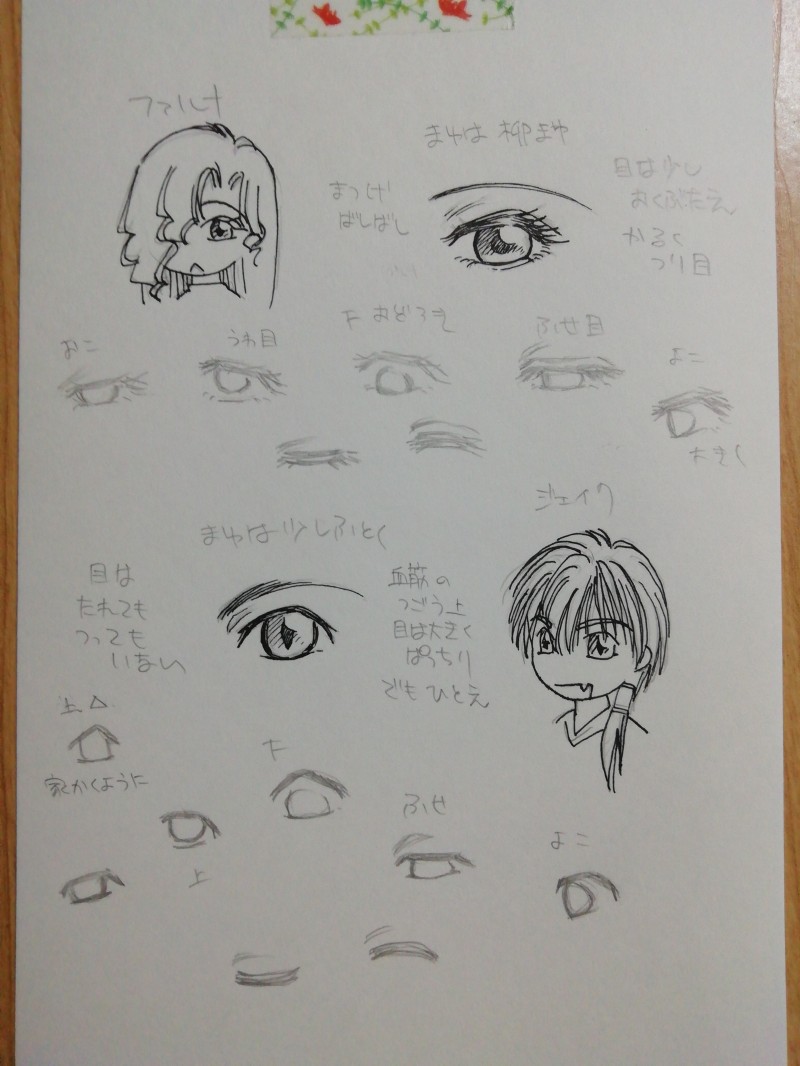 ファルナ
まゆは 柳まゆ
まつげ
ばしばし
目は少し
おくぶたえ
かるく
つり目
おこ
うわ目
下 おどろき
ふせ目
よこ
大きく
ジェイク
まゆは少しふとく
目は
たれても
つっても
いない
血筋の
つごう上
目は大きく
ぱっちり
でもひとえ
上△
家かくように
下
上
ふせ
よこ